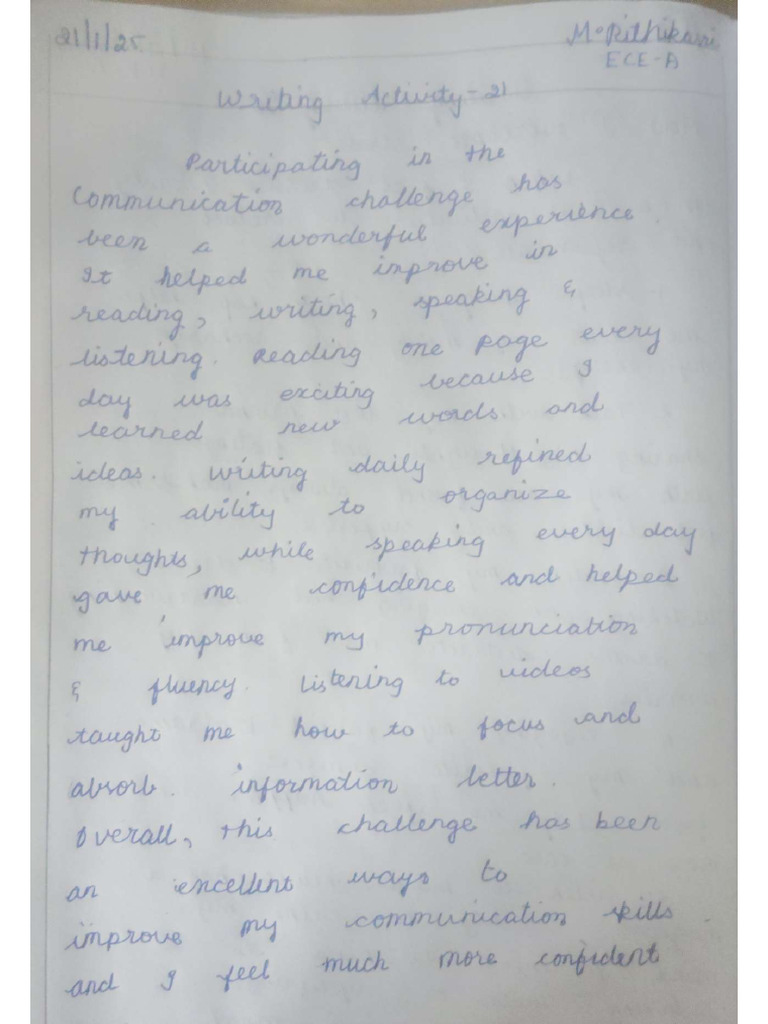 21/1/25
M. Rithikasri
ECE-A
Writing Activity-21
Participating in the
Communication challenge has
been a wonderful experience.
It helped me improve in
reading, writing, speaking &
listening. Reading one page every
day was exciting because I
learned new words and
ideas. Writing daily refined
my ability to organize
thoughts, while speaking every day
gave me confidence and helped
me improve my pronunciation
& fluency. Listening to videos
taught me how to focus and
absorb. information letter.
Overall, this challenge has been
an excellent ways to
improve my communication skills.
and I feel much more confident